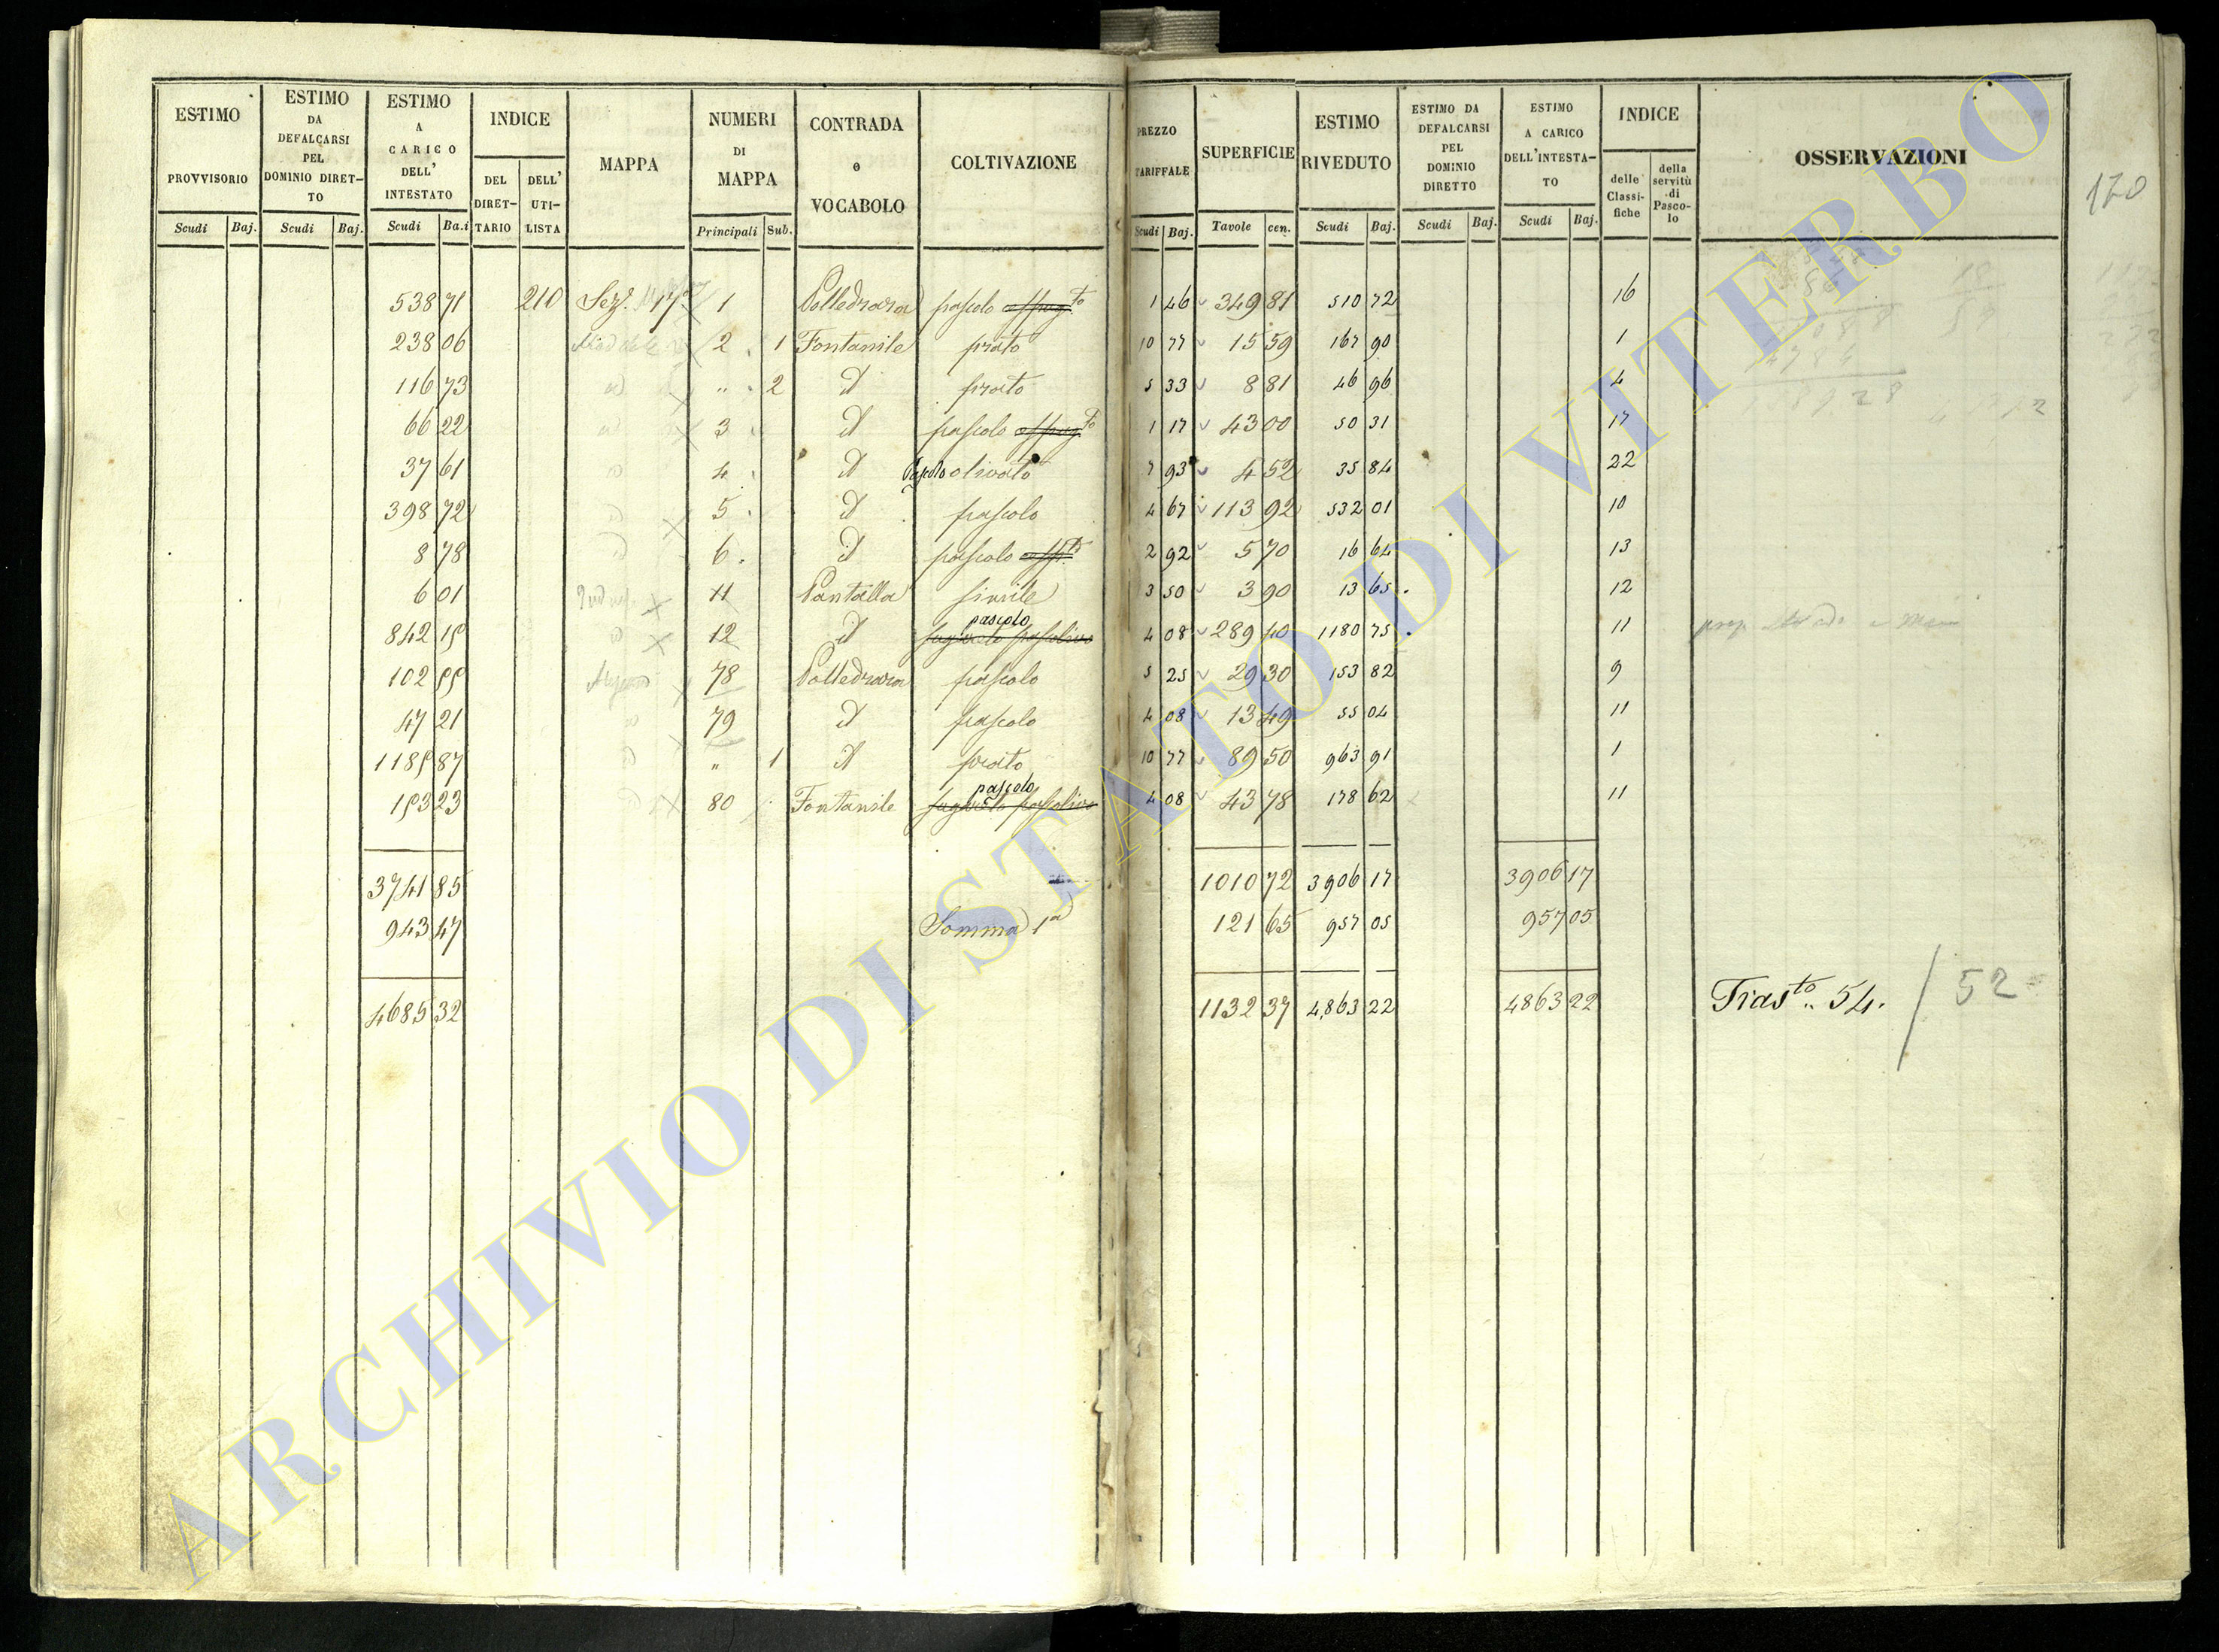 ESTIMO PROVVISORIO Scudi Baj.
ESTIMO DA DEFALCARSI PEL DOMINIO DIRET-TO Scudi Baj.
ESTIMO A CARICO DELL' INTESTATO Scudi Ba.i
INDICE DEL DIRET-TARIO DELL' UTI-LISTA
MAPPA
NUMERI DI MAPPA Principali Sub.
CONTRADA o VOCABOLO
COLTIVAZIONE
PREZZO TARIFFALE Scudi Baj.
SUPERFICIE Tavole cen.
ESTIMO RIVEDUTO Scudi Baj.
ESTIMO DA DEFALCARSI PEL DOMINIO DIRETTO Scudi Baj.
ESTIMO A CARICO DELL'INTESTA-TO Scudi Baj.
INDICE delle Classi-fiche della servitù di Pasco-lo
OSSERVAZIONI
170
538 71 210 Sez.e 17a 1 Polledrara pascolo 1 46 349 81 510 72 16
238 06 2 1 Fontanile prato 10 77 15 59 167 90 1
116 73 " 2 id prato 5 33 8 81 46 96 4
66 22 3 id pascolo 1 17 43 00 50 31 17
37 61 4 id Pascolo olivato 7 93 4 52 35 84 22
398 72 5 id pascolo 4 67 113 92 532 01 10
8 78 6 id pascolo 2 92 5 70 16 64 13
6 01 11 Pantalla simile 3 50 3 90 13 65 12
842 19 12 id pascolo 4 08 289 40 1180 75 11
102 99 78 Polledrara pascolo 5 25 29 30 153 82 9
47 21 79 id pascolo 4 08 13 49 55 04 11
1189 87 " 1 id prato 10 77 89 50 963 91 1
193 23 80 Fontanile pascolo 4 08 43 78 178 62 11
3741 85 1010 72 3906 17 3906 17
943 47 Somma 1a 121 65 957 05 957 05
4685 32 1132 37 4,863 22 4863 22 Trasto 54. / 52
ARCHIVIO DI STATO DI VITERBO